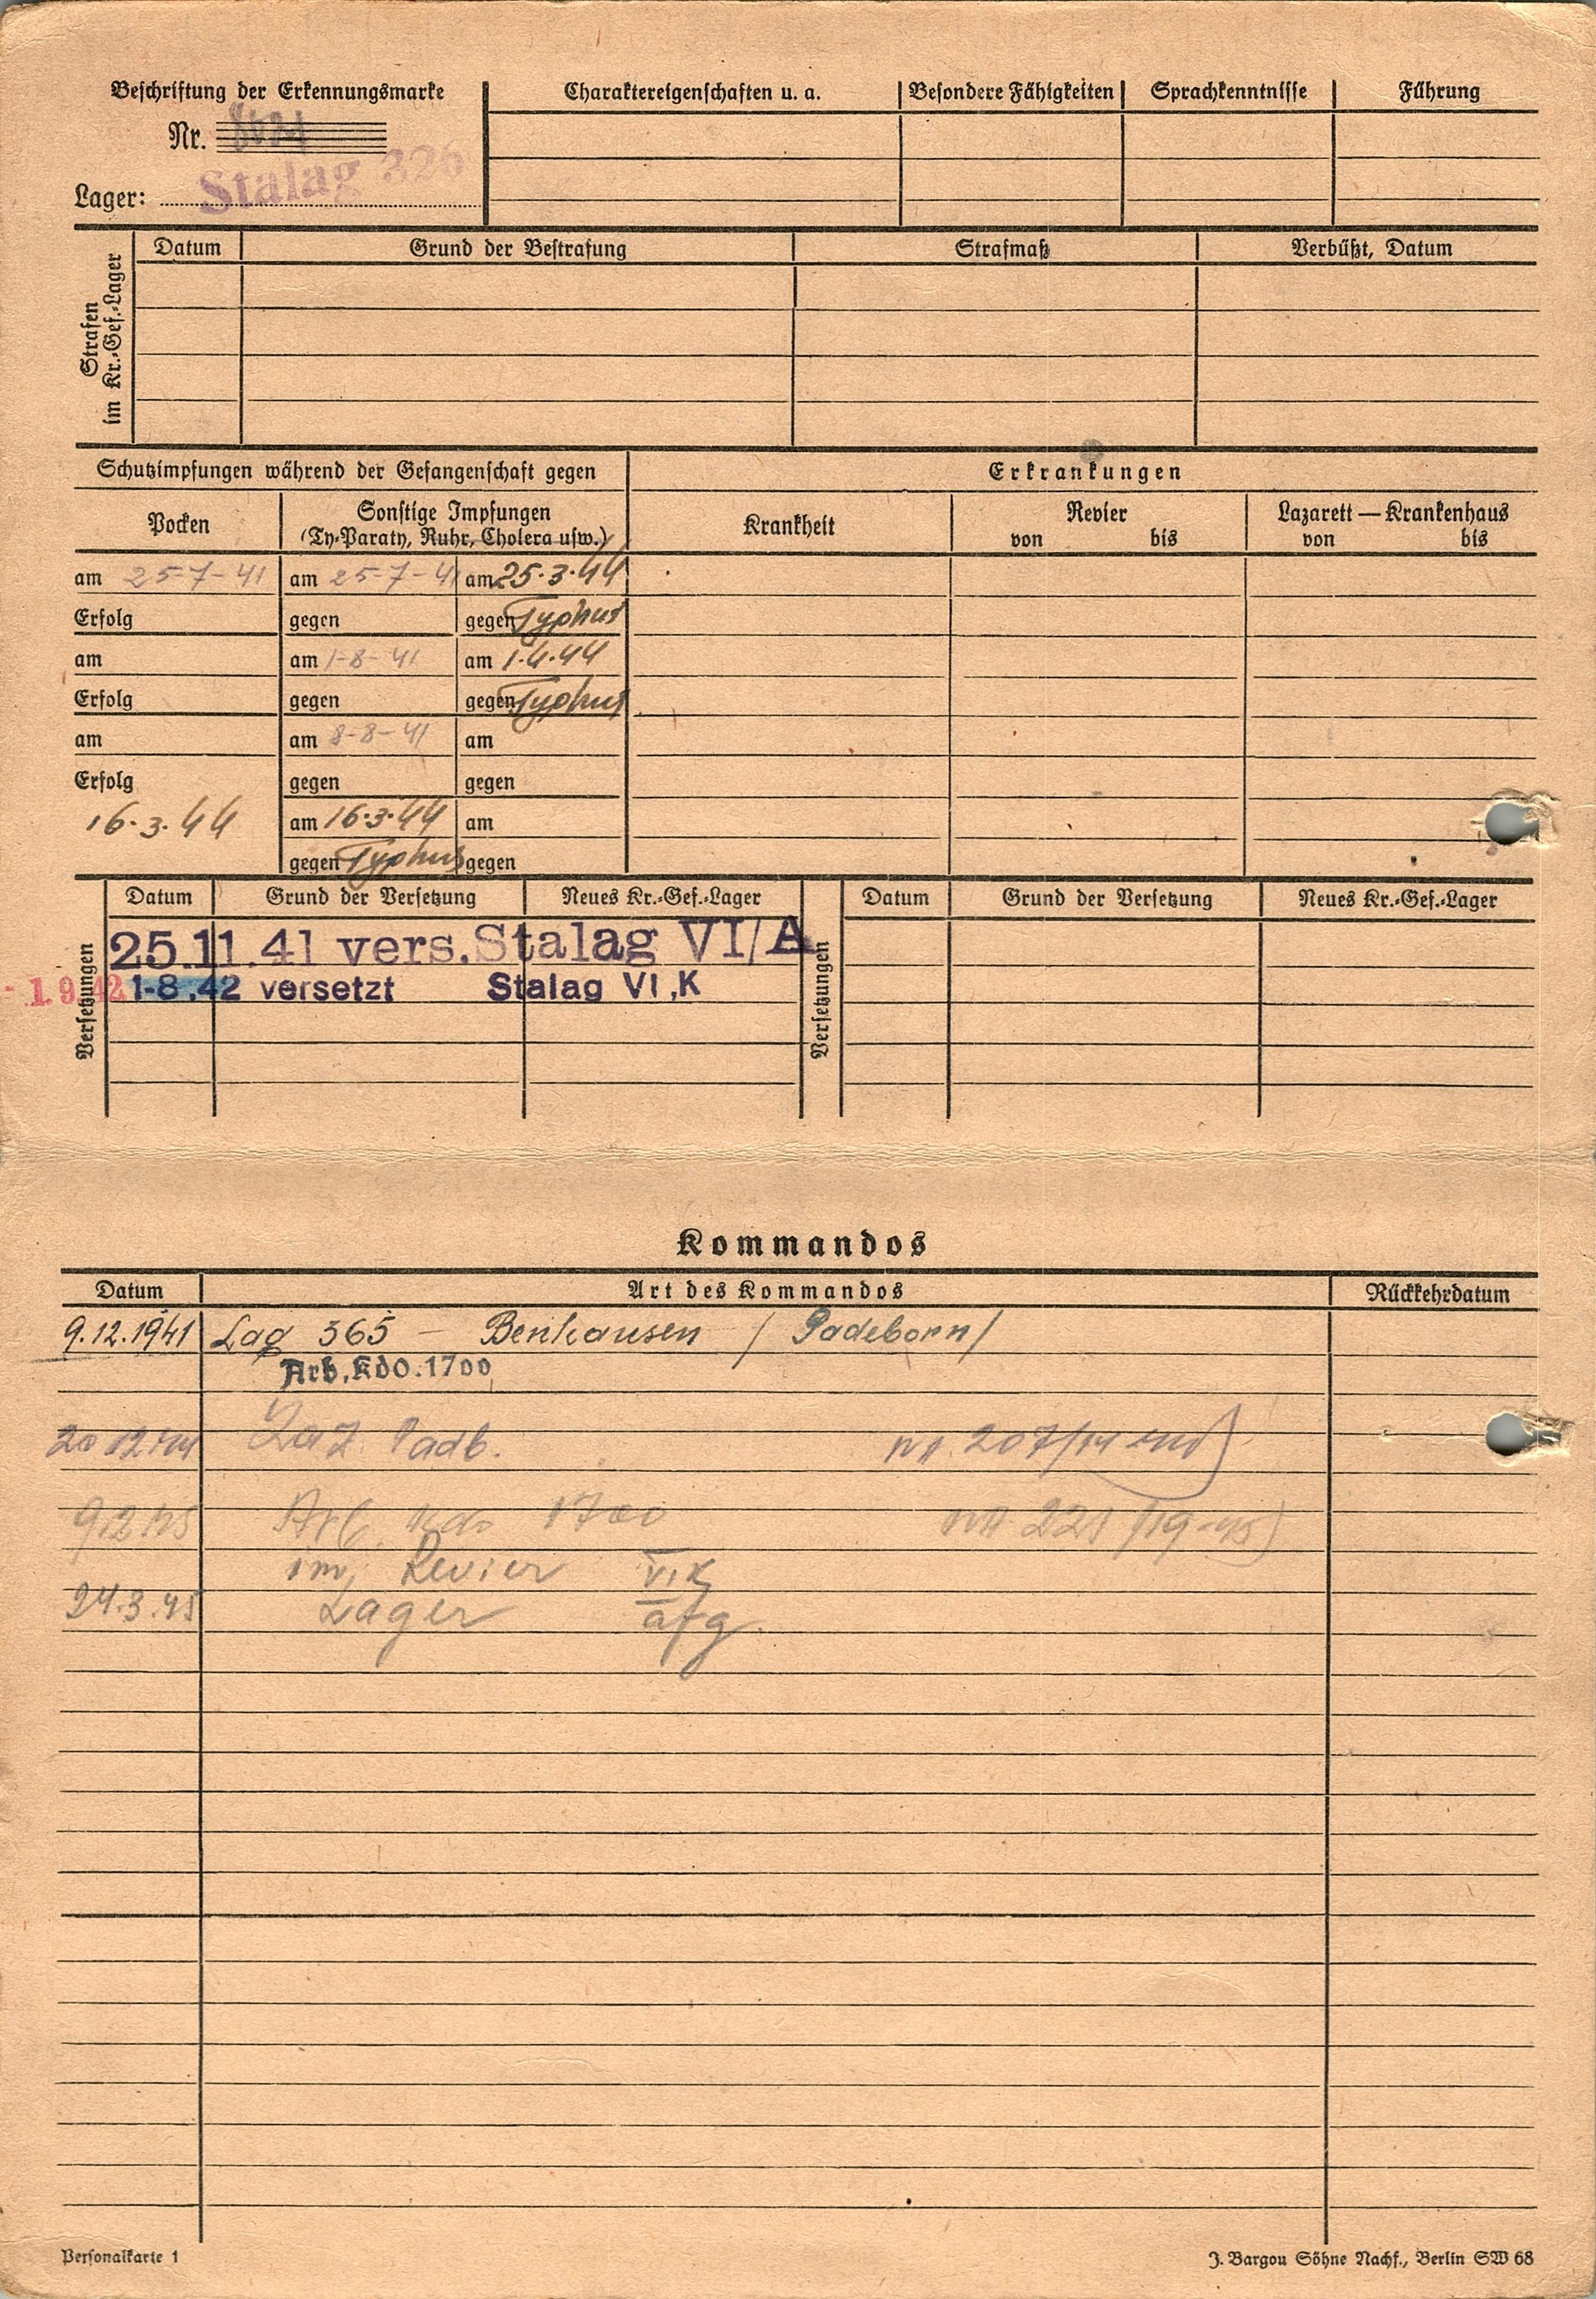 Beschriftung der Erkennungsmarke
Nr.
Lager: Stalag 326
Charaktereigenschaften u. a.
Besondere Fähigkeiten
Sprachkenntnisse
Führung
Strafen im Kr.-Gef.-Lager
Datum Grund der Bestrafung Strafmaß Verbüßt, Datum
Schutzimpfungen während der Gefangenschaft gegen
Erkrankungen
Pocken
Sonstige Impfungen
(Ty-Paraty, Ruhr, Cholera usw.)
Krankheit
Revier
von bis
Lazarett — Krankenhaus
von bis
am 25-7-41 am 25-7-41 am 25.3.44
Erfolg gegen gegen Typhus
am am 1-8-41 am 1.4.44
Erfolg gegen gegen Typhus
am am 8-8-41 am
Erfolg gegen gegen
16.3.44 am 16.3.44 am
gegen Typhus gegen
Versetzungen
Datum Grund der Versetzung Neues Kr.-Gef.-Lager
25.11.41 vers. Stalag VI/A
- 1.9.42 1-8.42 versetzt Stalag VI,K
Versetzungen
Datum Grund der Versetzung Neues Kr.-Gef.-Lager
Kommandos
Datum Art des Kommandos Rückkehrdatum
9.12.1941 Lag 365 — Benhausen / Padeborn /
Arb.Kdo.1700
20 12 44 Laz Padb. 207/14
9.2.45 Arb. Kdo 1700 221
im Revier VI K
24.3.45 Lager afg.
Personalkarte 1
J. Bargou Söhne Nachf., Berlin SW 68